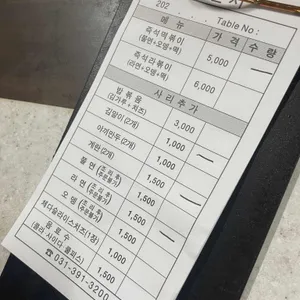 202 . . . Table No :
메 뉴 가 격 수 량
즉석떡볶이
(쫄면+오뎅+떡) 5,000
즉석라볶이
(라면+오뎅+떡) 6,000
사 리 추 가
밥 볶 음
(김가루+치즈) 3,000
김말이 (2개) 1,000
야끼만두 (2개) 1,000
계란 (2개) 1,500
쫄 면 (조리 후 주문불가) 1,500
라 면 (조리 후 주문불가) 1,500
오 뎅 (조리 후 주문불가) 1,500
체다슬라이스치즈(1장) 1,000
음 료 수
(콜라, 사이다, 쿨피스) 1,500
☎ 031-391-3200